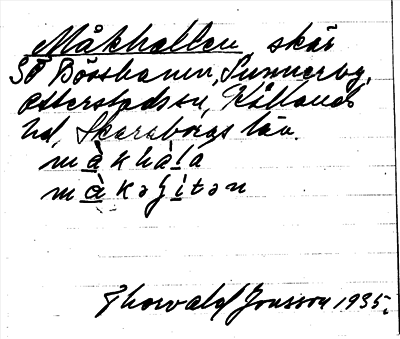 Måkhallen, skär
SO Börshamn, Sunnerby,
Otterstads sn, Kållands
hd, Skaraborgs län.
m à k h à l a
m à k ə ʃ i t ə n
Thorvald Jonsson 1935.